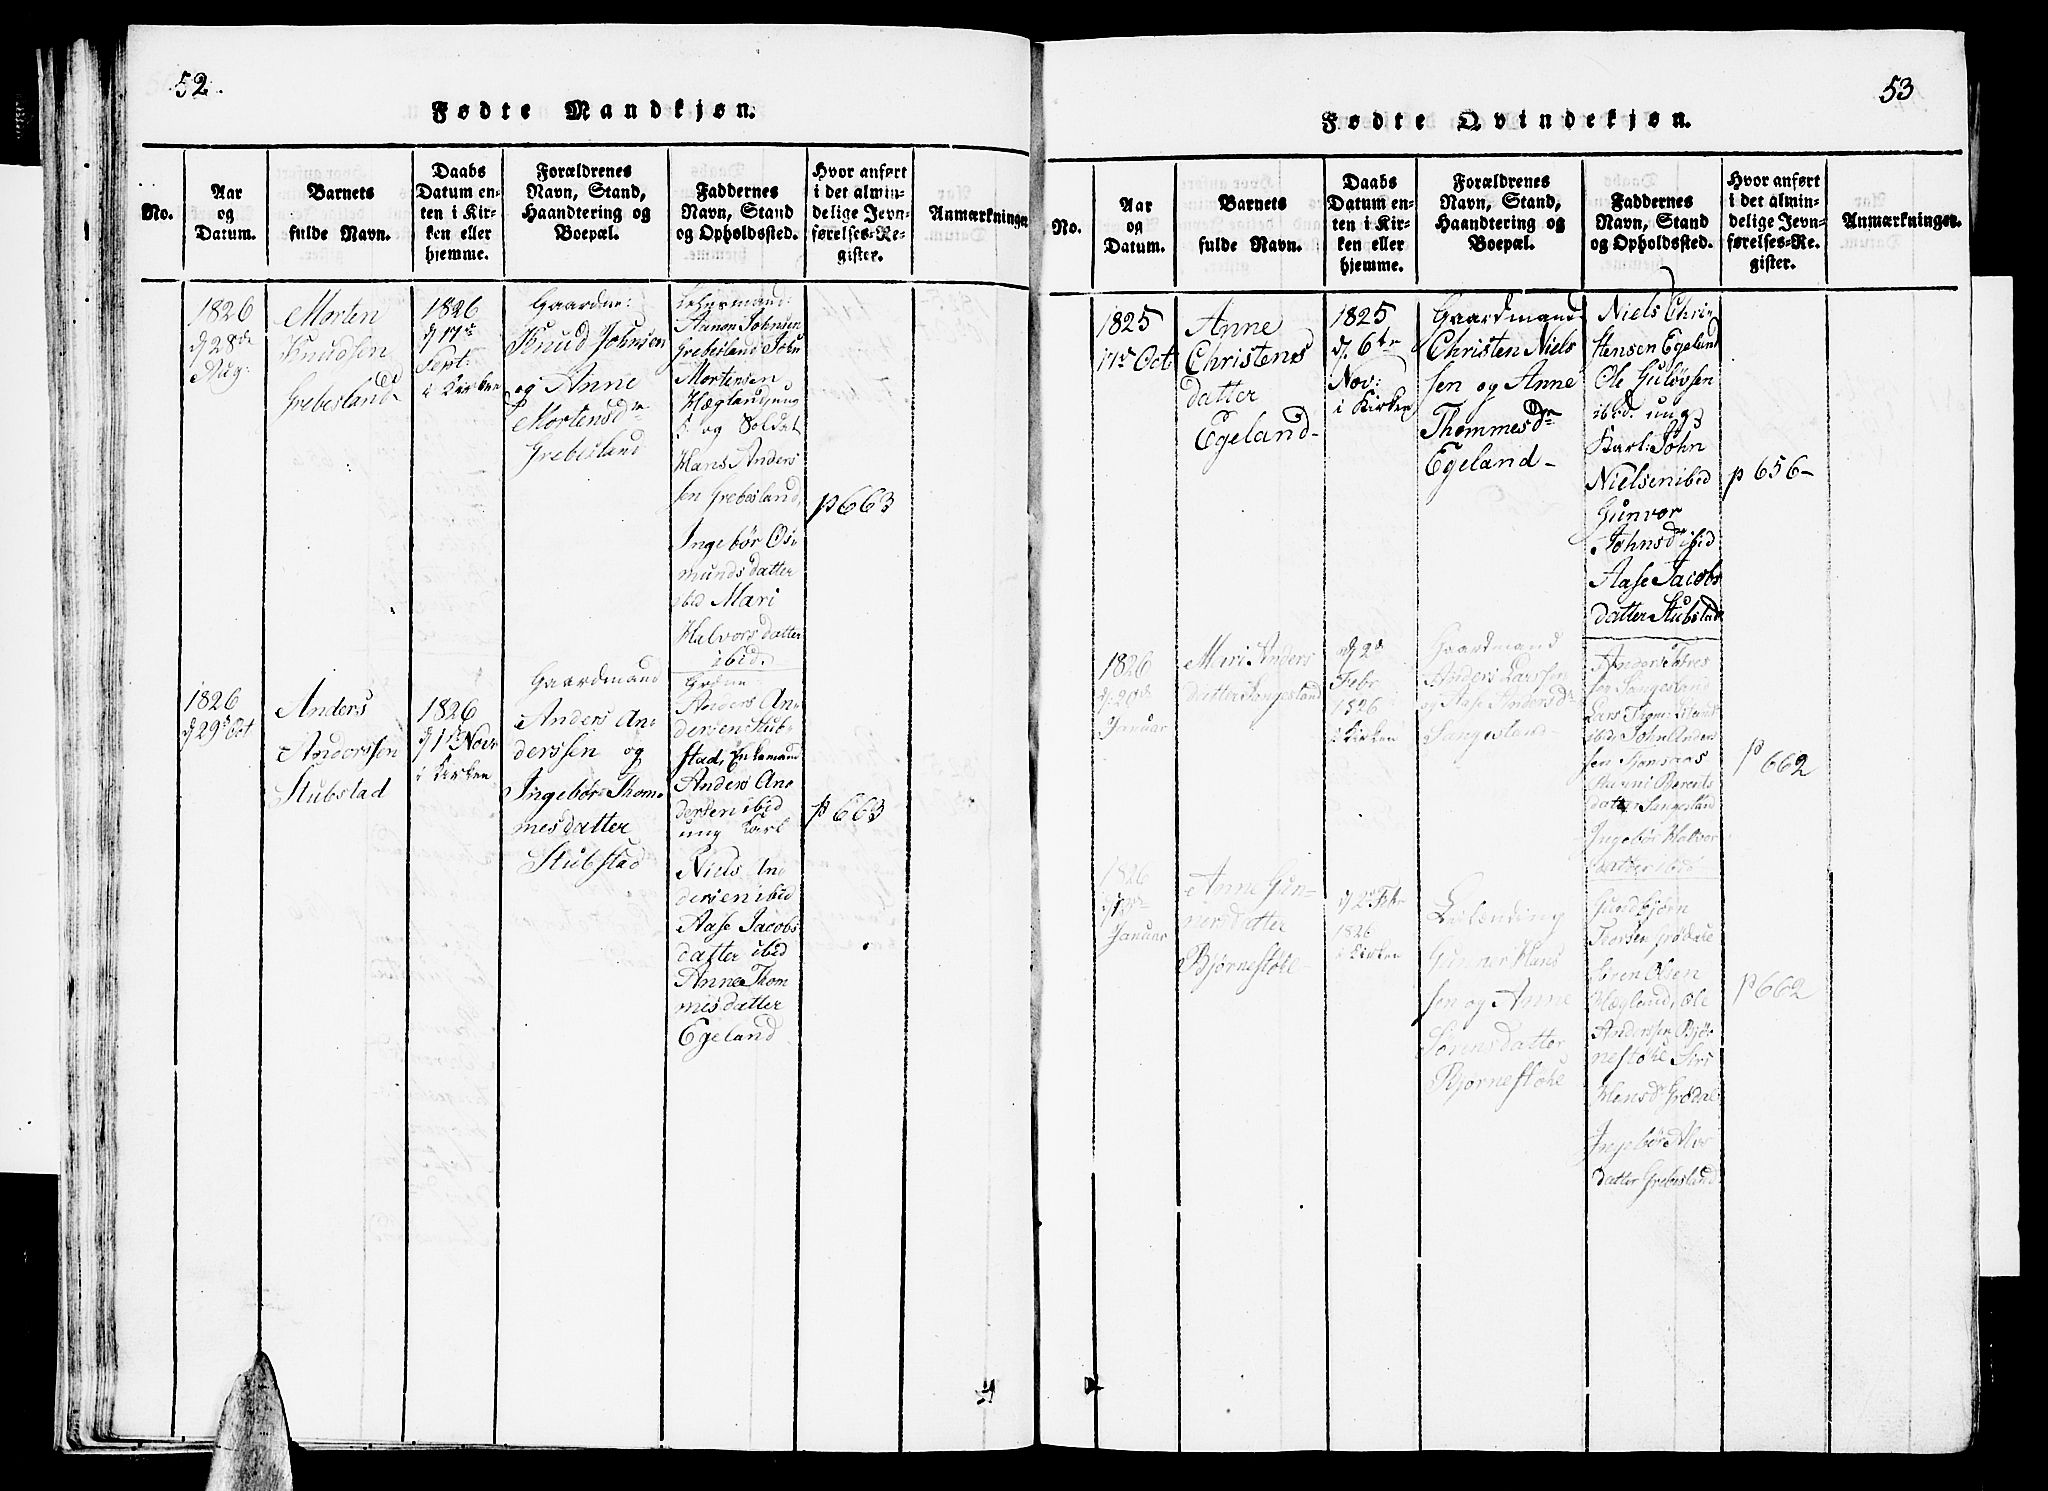 52.
Fødte Mandkjøn.
No.
Aar
og
Datum.
Barnets
fulde Navn.
Daabs
Datum en-
ten i Kir-
ken eller
hjemme.
Forældrenes
Navn, Stand,
Haandtering og
Boepæl.
Faddernes
Navn, Stand
og Opholdssted.
Hvor anført
i det almin-
delige Jevn-
førelses-Re-
gister.
Anmærkninger
1826
d 28de
Aug:
Morten
Knudsen
Grebesland
1826
d 17de
Sept:
i Kirken
Gaardm:
Knud Johnsen
og Anne
Mortensdr
Grebesland
Aanon Johnsen
Grebesland John
Mortensen
Hægland ung
K. og Soldat
Hans Anders
sen Grebesland,
Ingebør Os-
munds datter
ibid Mari
Halvors datter
ibid.
p 663
1826
d 29de Oct
Anders
Anderssen
Stubstad
1826
d 1te Novr
i Kirken
Gaardmand
Anders An-
derssen og
Ingebør Thom-
mesdatter
Stubstad
Anders An-
dersen Stub-
stad, Enkemand
Anders An-
dersen ibid
ung Karl
Niels An-
dersen ibid
Aase Jacobs
datter ibid
Anne Thom
mesdatter
Egeland
p 663
53
Fødte Qvindekjøn.
No.
Aar
og
Datum.
Barnets
fulde Navn.
Daabs
Datum en-
ten i Kir-
ken eller
hjemme.
Forældrenes
Navn, Stand,
Haandtering og
Boepæl.
Faddernes
Navn, Stand
og Opholdssted.
Hvor anført
i det almin-
delige Jevn-
førelses-Re-
gister.
Anmærkninger.
1825
17de Oct
Anne
Christens
datter
Egeland-
1825
d. 6te
Nov:
i Kirken
Gaardmand
Christen Niels
sen og Anne
Thommesdr
Egeland-
Niels Chri-
stensen Egeland
Ole Guløvsen
ibid. ung
Karl: John
Nielsen ibid
Gunvor
Johnsdr ibid
Aase Jacobs
datter Stubstad
p 656-
1826
d. 20de
Januar
Mari Anders
datter Sangesland
d 2de
Febr
1826
i Kirken
Gaardmand
Anders Larssen
og Aase Andersdr
Sangesland-
Anders Tores
sen Sangesland
Lars Thom:
ibid John Anders
sen
Berents
datter Sangesland
Ingebør Halvor
datter ibid
p 662
1826
Januar
Anne Gun-
nersdatter
Bjørnestøke-
d 2de Febr
1826
i Kirken
Gunner Hans
sen og Anne
Sørensdatter
Bjørnestøke
Gundbjørn
Thorsen Grødale
Søren Olsen
Hægland, Ole
Anderssen Bjør-
nestøke Siri
Hansdr Grødal
Ingebør
datter Grebesland
p 662